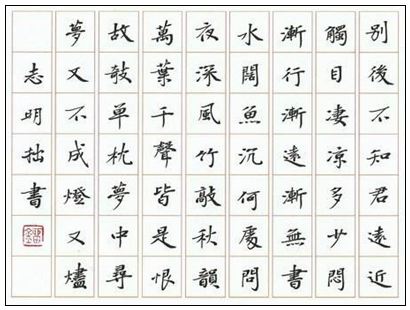 別後不知君遠近
觸目凄涼多少悶
漸行漸遠漸無書
水闊魚沉何處問
夜深風竹敲秋韻
萬葉千聲皆是恨
故敧单枕夢中尋
夢又不成燈又燼
志明拙書